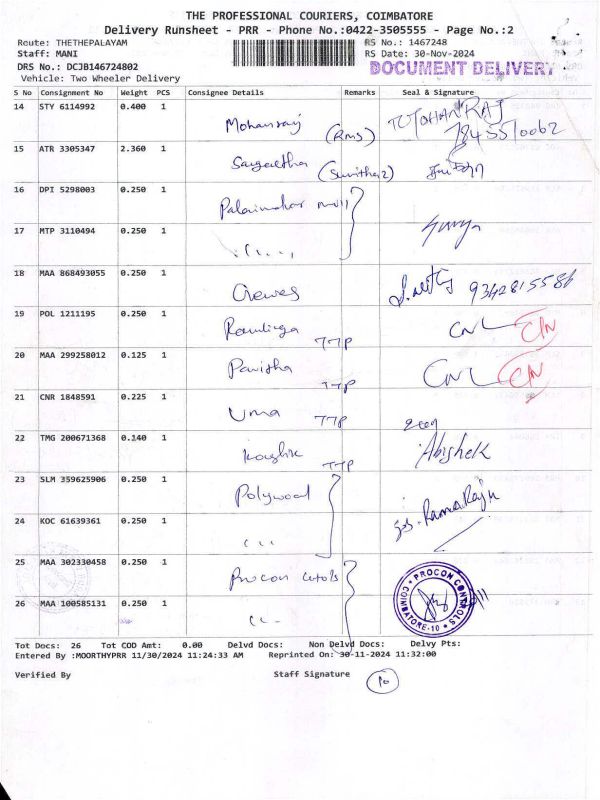 THE PROFESSIONAL COURIERS, COIMBATORE
Delivery Runsheet - PRR - Phone No.:0422-3505555 - Page No.:2
Route: THETHEPALAYAM RS No.: 1467248
Staff: MANI RS Date: 30-Nov-2024
DRS No.: DCJB146724802 DOCUMENT DELIVERY
Vehicle: Two Wheeler Delivery
S No Consignment No Weight PCS Consignee Details Remarks Seal & Signature
14 STY 6114992 0.400 1 Mohanraj (RMS) MOHAN RAJ
7845510062
15 ATR 3305347 2.360 1 Sangeetha (Sunitha2)
16 DPI 5298003 0.250 1 Palanimahar mill
17 MTP 3110494 0.250 1 Surya
18 MAA 868493055 0.250 1 Crewes 9342815586
19 POL 1211195 0.250 1 Ramlinga TTP CNL CN
20 MAA 299258012 0.125 1 Pavitha TTP CNL CN
21 CNR 1848591 0.225 1 Uma TTP
22 TMG 200671368 0.140 1 Koushik TTP Abishek
23 SLM 359625906 0.250 1 Polywood
24 KOC 61639361 0.250 1 RamaRaju
25 MAA 302330458 0.250 1 Procon Cntols
26 MAA 100585131 0.250 1
PROCON CONTROLS COIMBATORE-10
Tot Docs: 26 Tot COD Amt: 0.00 Delvd Docs: Non Delvd Docs: Delvy Pts:
Entered By :MOORTHYPRR 11/30/2024 11:24:33 AM Reprinted On: 30-11-2024 11:32:00
Verified By Staff Signature